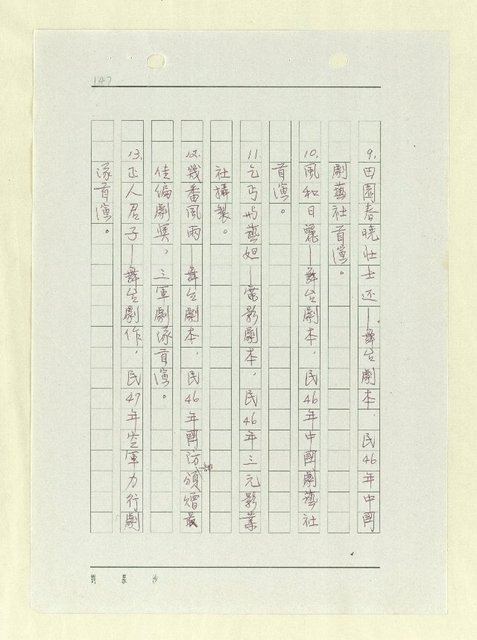 147
9. 田園春曉壯士还—舞台劇本，民46年中國
劇藝社首演。
10. 風和日麗—舞台劇本，民46年中國劇藝社
首演。
11. 乞丐与藝妲—電影劇本，民46年三元影業
社攝製。
12. 幾番風雨—舞台劇本，民46年國防部頒贈最
佳編劇獎，三軍劇隊首演。
13. 正人君子—舞台劇作，民47年空軍力行劇
隊首演。